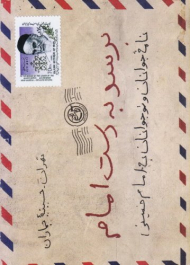 برسد بدست امام
نامهٔ جوانان و نوجوانان به امام خمینی
تهران، حسینیه جماران